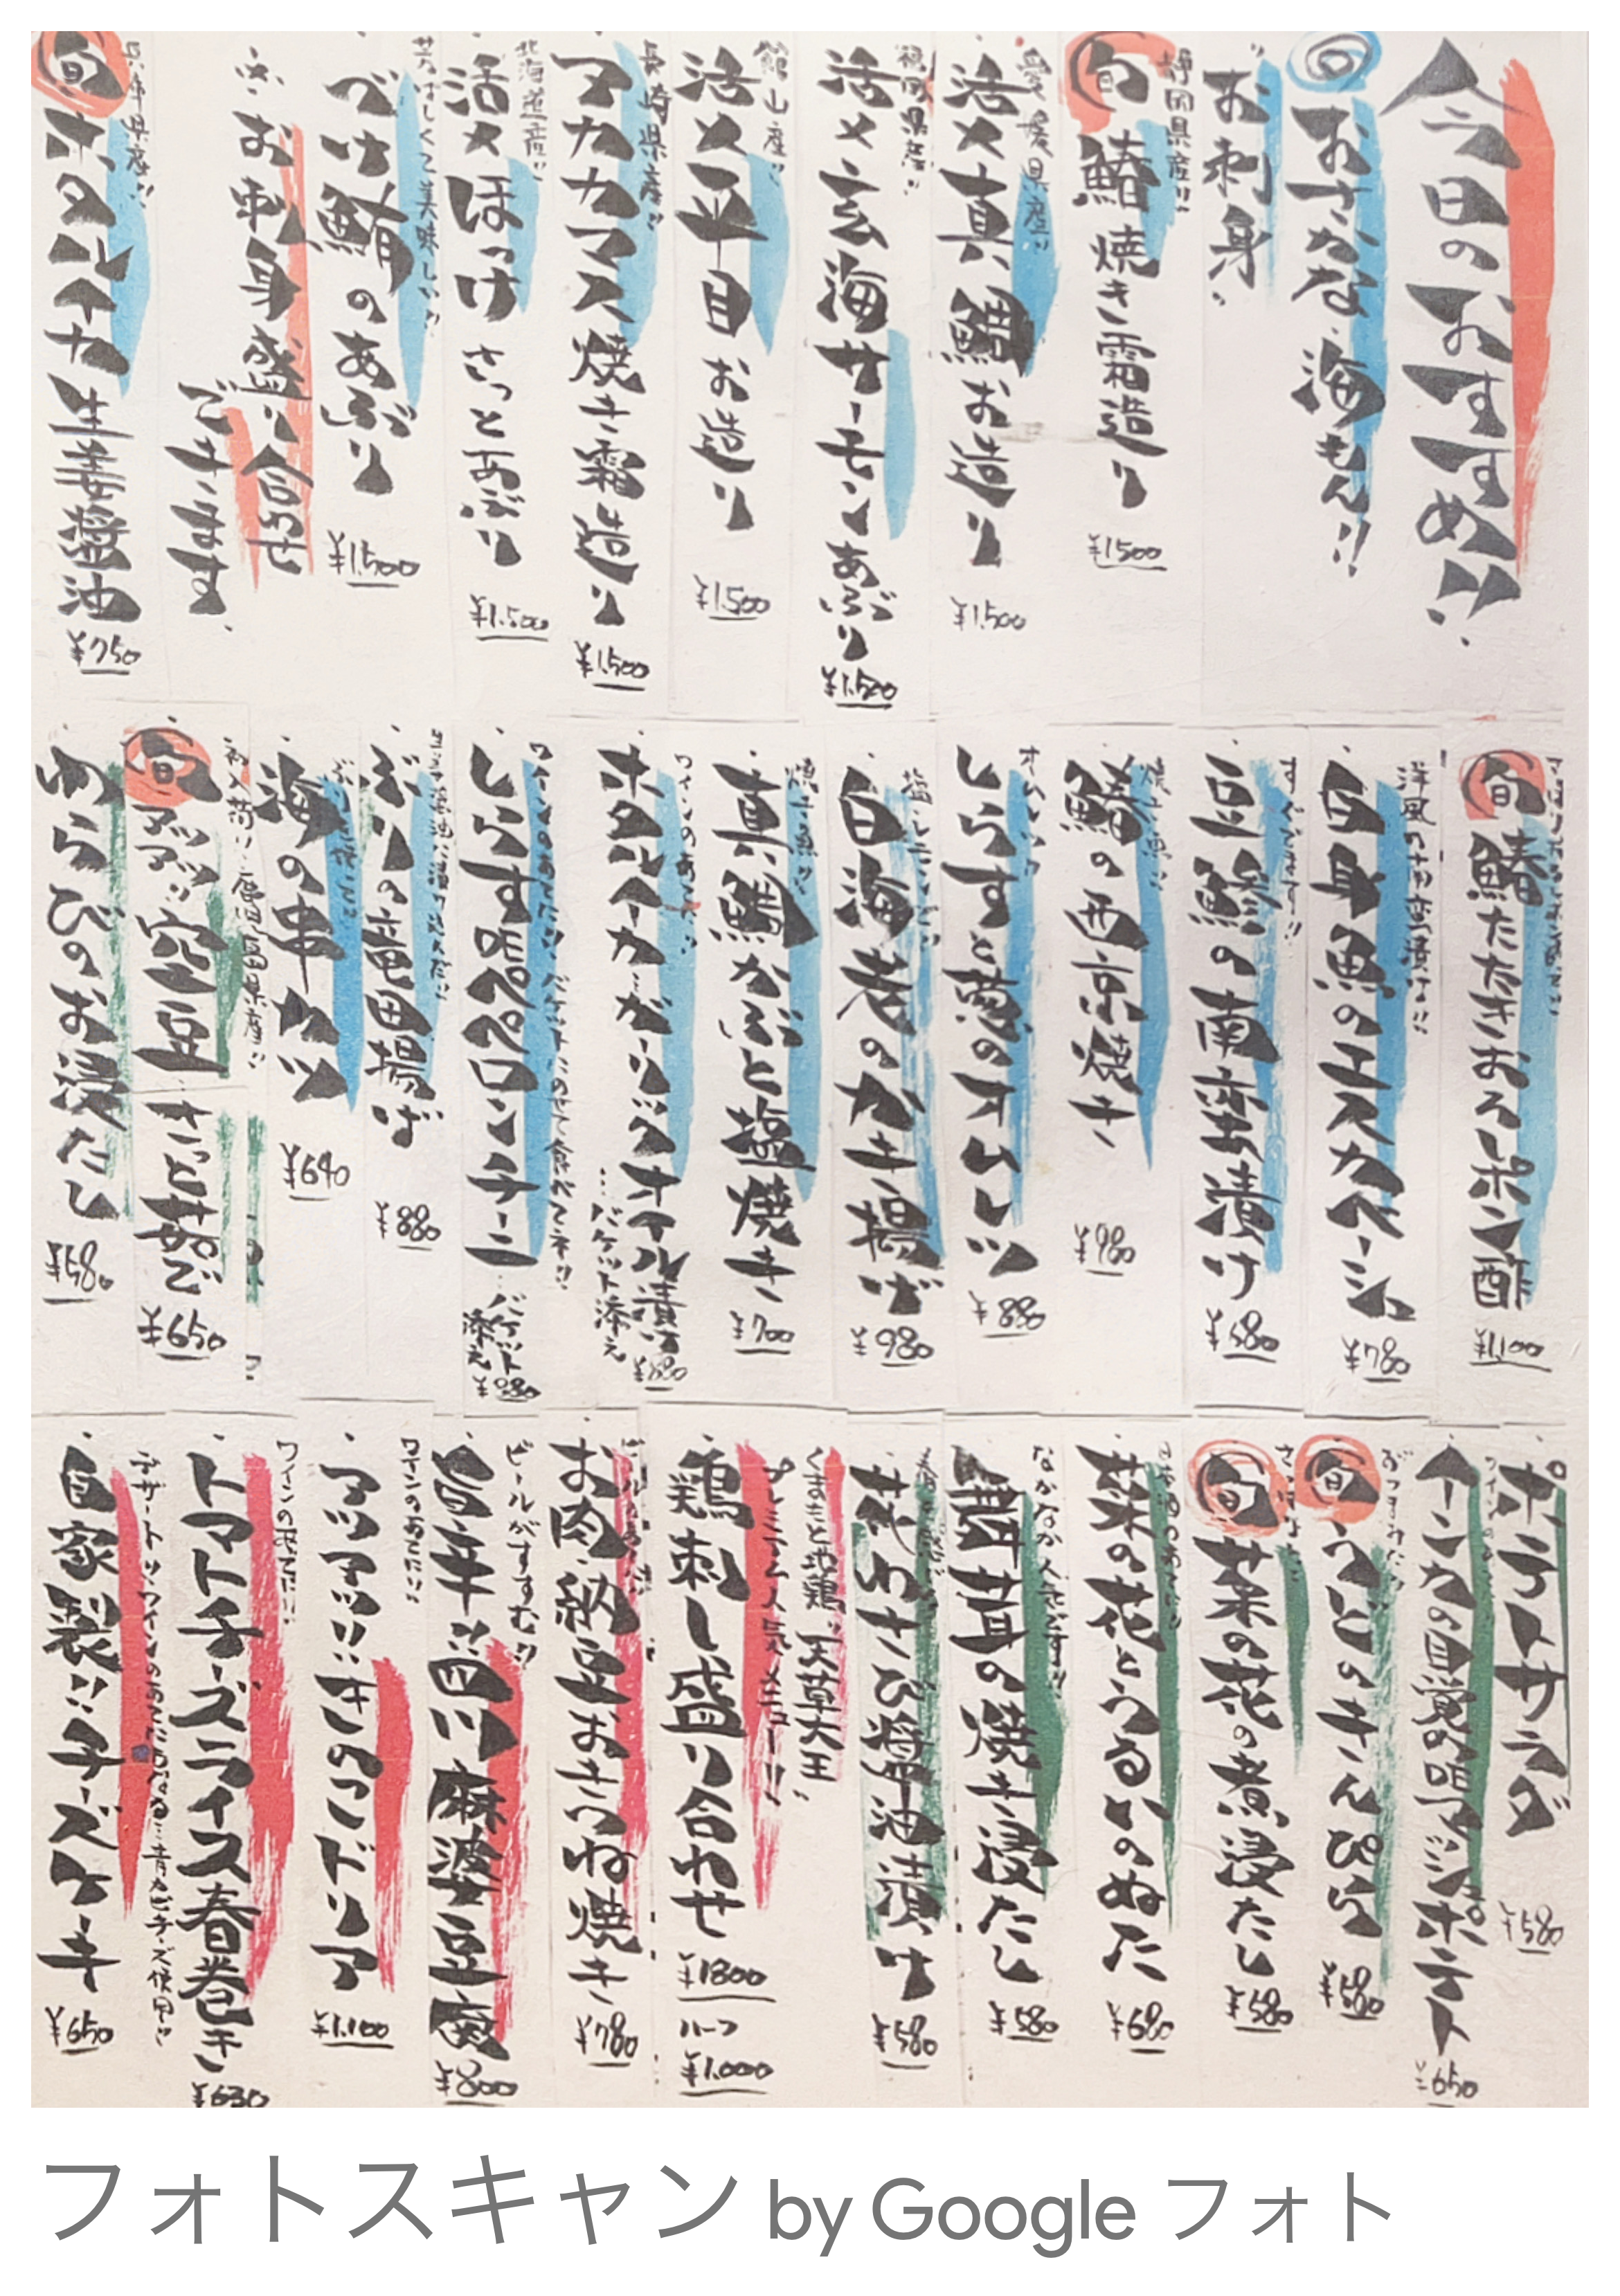 今日のおすすめ!!
旬 おさかな海もん!!
お刺身
静岡県産!!
旬 鰆焼き霜造り ¥1500
愛媛県産!!
活〆真鯛お造り ¥1,500
福岡県産!!
活〆玄海サーモンあぶり ¥1,500
館山産!!
活〆平目お造り ¥1,500
長崎県産!!
アカカマス焼き霜造り ¥1,500
北海道産!!
活〆ほっけさっとあぶり ¥1,500
芳ばしくて美味しい!!
づけ鮪のあぶり ¥1,500
お刺身盛り合わせ
できます
兵庫県産!!
旬 ホタルイカ生姜醤油 ¥750
旬 鰆たたきおろしポン酢 ¥1,100
洋風の南蛮漬け!!
白身魚のエスカベーシュ ¥780
すぐできます!!
豆鯵の南蛮漬け ¥580
焼き魚!!
鰆の西京焼き ¥980
しらすと葱のオムレツ ¥880
白海老のかき揚げ ¥980
焼き魚!!
真鯛かぶと塩焼き ¥700
ワインのあてに!!
ホタルイカガーリックオイル漬け
…バケット添え
ワインのあてに!! バケットにのせて食べてネ!!
しらすのペペロンチーニ…バケット添え
ぶりの竜田揚げ ¥880
海の串カツ ¥640
初入荷!! 鹿児島県産!!
旬 空豆 さっと茹で ¥650
わらびのお浸たし ¥580
ポテトサラダ ¥580
インカの目覚めのマッシュポテト ¥650
旬 うどのきんぴら ¥580
旬 菜の花の煮浸たし ¥580
菜の花とうるいのぬた ¥680
なかなか人気です!!
椎茸の焼き浸たし ¥580
花わさび醤油漬け ¥580
くまもと地鶏「天草大王」
プレミアム人気メニュー!!
鶏刺し盛り合わせ ¥1800
ハーフ ¥1,000
お肉納豆おきつね焼き ¥780
ビールがすすむ!!
旨辛!!四川麻婆豆腐 ¥800
ワインのあてに!!
アツアツ!!きのこドリア ¥1,100
ワインのあてに!!
トマトチーズライス春巻き ¥630
デザート!!ワインのあてにもなる…青カビチーズ使用!!
自家製!!チーズケーキ ¥650
フォトスキャン by Google フォト